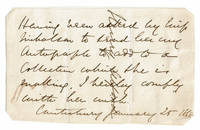 Having been asked by Miss
Nicholson to send her my
Autograph to add to a
Collection which she is
making, I hereby comply
with her wish.
Canterbury January 25